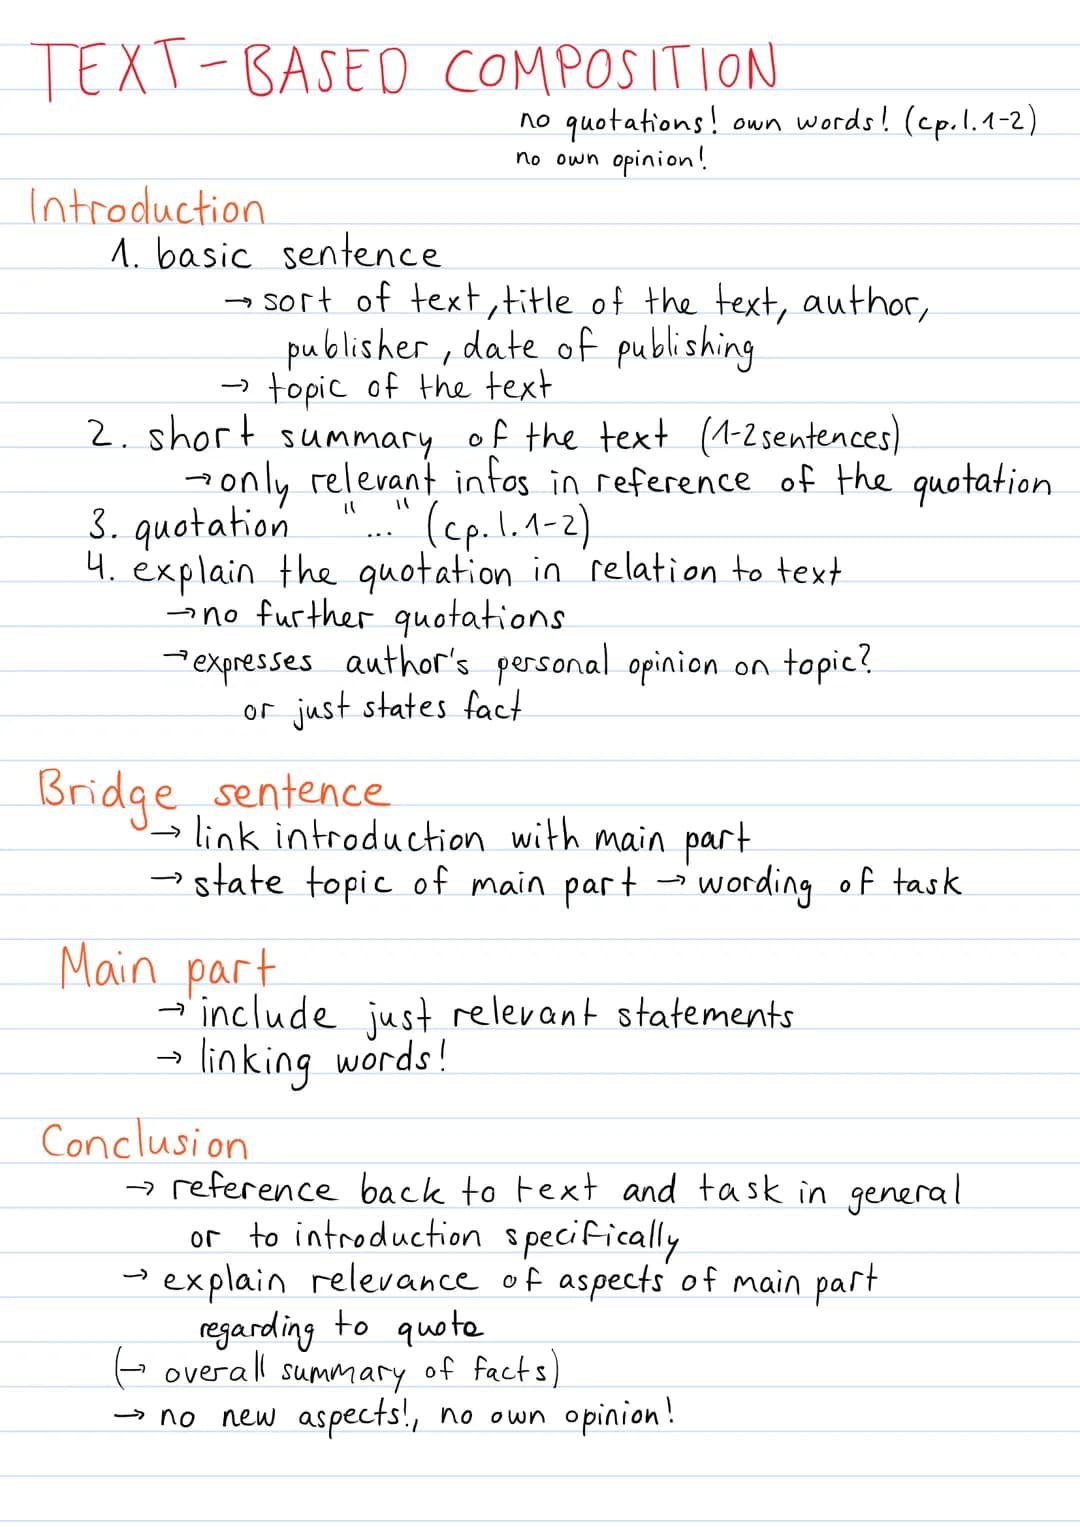 TEXT-BASED COMPOSITION
no quotations! own words! (cp.l.1-2)
no own opinion!
Introduction
1. basic sentence
→ sort of text, title of the text, author,
publisher, date of publishing
→ topic of the text
2. short summary of the text (1-2 sentences)
→ only relevant infos in reference of the quotation
3. quotation "..." (cp.l.1-2)
4. explain the quotation in relation to text
→ no further quotations
→ expresses author's personal opinion on topic?
or just states fact
Bridge sentence
→ link introduction with main part
→ state topic of main part → wording of task
Main part
→ include just relevant statements
→ linking words!
Conclusion
→ reference back to text and task in general
or to introduction specifically
→ explain relevance of aspects of main part
regarding to quote
(→ overall summary of facts)
→ no new aspects!, no own opinion!